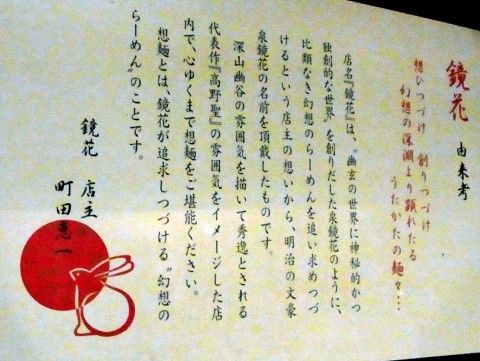 鏡花 由来考
想ひつづけ 創りつづけ
幻想の深淵より顕れたる
うたかたの麺々・・・
店名『鏡花』は、〝幽玄の世界に神秘的かつ
独創的な世界〟を創りだした泉鏡花のように、
比類なき幻想のらーめんを追い求めつづ
けるという店主の想いから、明治の文豪
泉鏡花の名前を頂戴したものです。
深山幽谷の雰囲気を描いて秀逸とされる
代表作『高野聖』の雰囲気をイメージした店
内で、心ゆくまで想麺をご堪能ください。
想麺とは、鏡花が追求しつづける〝幻想の
らーめん〟のことです。
鏡花 店主
町田恵一